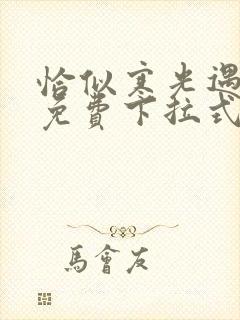 恰似寒光遇
免費下拉式
馬會友